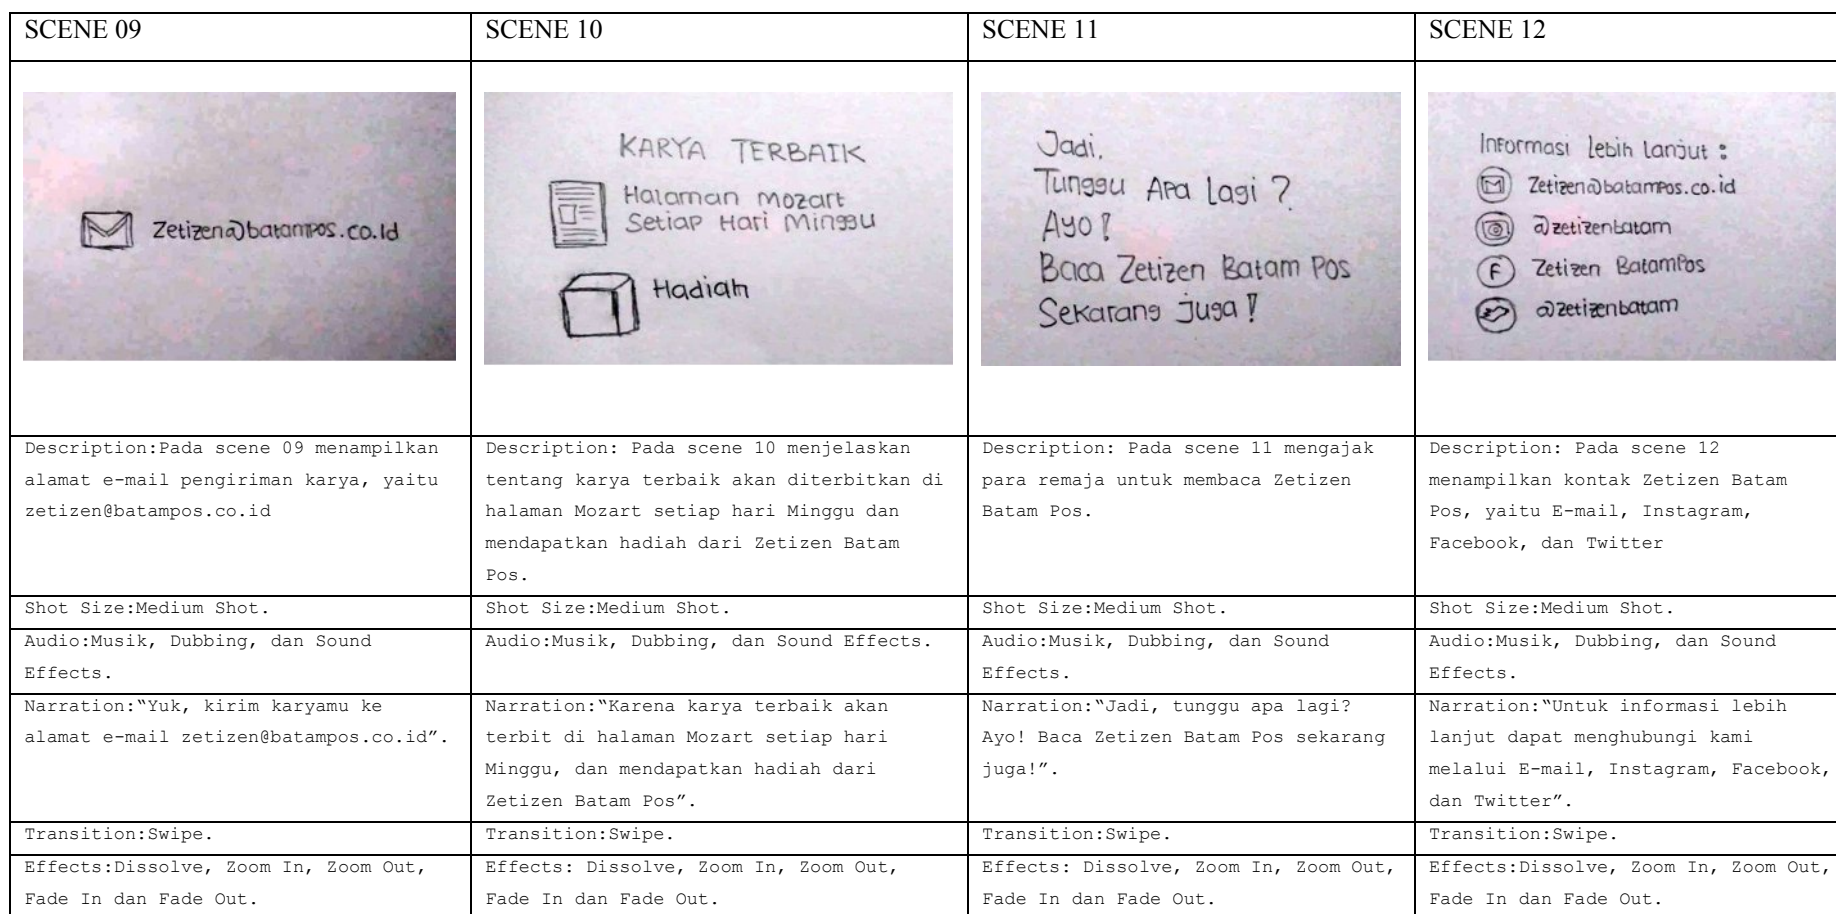 SCENE 09
SCENE 10
SCENE 11
SCENE 12
Zetizen@batampos.co.id
KARYA TERBAIK
Halaman Mozart
Setiap Hari Minggu
Hadiah
Jadi,
Tunggu Apa Lagi ?
Ayo !
Baca Zetizen Batam Pos
Sekarang Juga !
Informasi lebih lanjut :
Zetizen@batampos.co.id
@zetizenbatam
F Zetizen BatamPos
@zetizenbatam
Description:Pada scene 09 menampilkan
alamat e-mail pengiriman karya, yaitu
zetizen@batampos.co.id
Description: Pada scene 10 menjelaskan
tentang karya terbaik akan diterbitkan di
halaman Mozart setiap hari Minggu dan
mendapatkan hadiah dari Zetizen Batam
Pos.
Description: Pada scene 11 mengajak
para remaja untuk membaca Zetizen
Batam Pos.
Description: Pada scene 12
menampilkan kontak Zetizen Batam
Pos, yaitu E-mail, Instagram,
Facebook, dan Twitter
Shot Size:Medium Shot.
Shot Size:Medium Shot.
Shot Size:Medium Shot.
Shot Size:Medium Shot.
Audio:Musik, Dubbing, dan Sound
Effects.
Audio:Musik, Dubbing, dan Sound Effects.
Audio:Musik, Dubbing, dan Sound
Effects.
Audio:Musik, Dubbing, dan Sound
Effects.
Narration:“Yuk, kirim karyamu ke
alamat e-mail zetizen@batampos.co.id”.
Narration:“Karena karya terbaik akan
terbit di halaman Mozart setiap hari
Minggu, dan mendapatkan hadiah dari
Zetizen Batam Pos”.
Narration:“Jadi, tunggu apa lagi?
Ayo! Baca Zetizen Batam Pos sekarang
juga!”.
Narration:“Untuk informasi lebih
lanjut dapat menghubungi kami
melalui E-mail, Instagram, Facebook,
dan Twitter”.
Transition:Swipe.
Transition:Swipe.
Transition:Swipe.
Transition:Swipe.
Effects:Dissolve, Zoom In, Zoom Out,
Fade In dan Fade Out.
Effects: Dissolve, Zoom In, Zoom Out,
Fade In dan Fade Out.
Effects: Dissolve, Zoom In, Zoom Out,
Fade In dan Fade Out.
Effects:Dissolve, Zoom In, Zoom Out,
Fade In dan Fade Out.